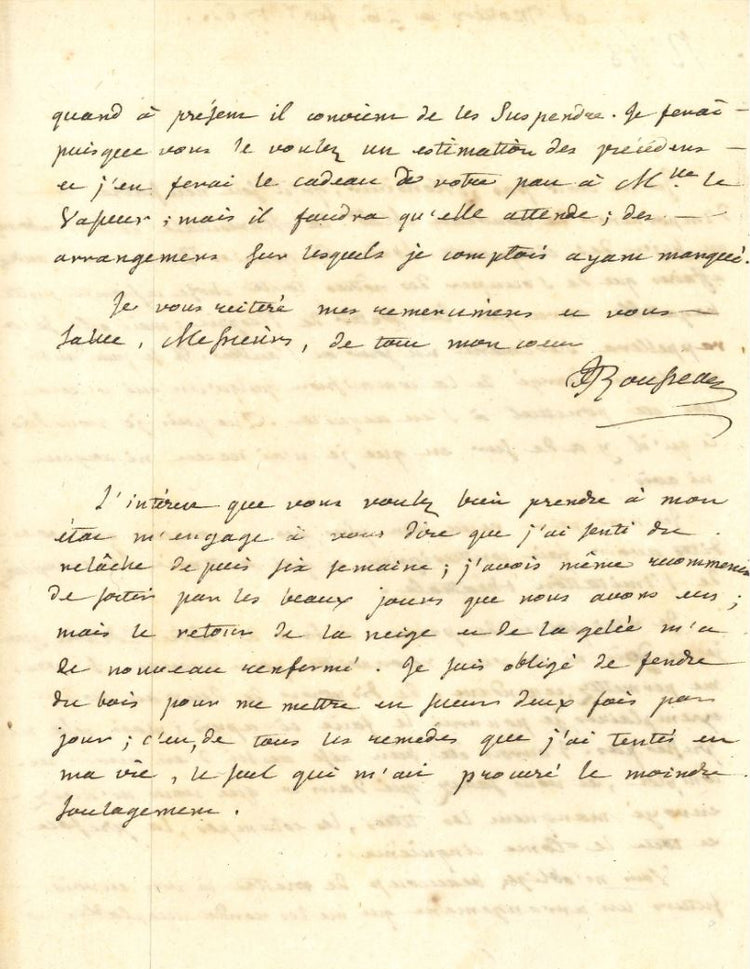 quand à présent il convient de les Suspendre. Je ferai
puisque vous le voulez un estimation des précédens
et j'en ferai le cadeau de votre part à Mlle le
Vasseur ; mais il faudra qu'elle attende ; des
arrangemens sur lesquels je comptois ayant manqué.
Je vous reitére mes remerciemens et vous
salue, Messieurs, de tout mon coeur
JJRousseau
L'intérest que vous voulez bien prendre à mon
état m'engage à vous dire que j'ai senti du
relâche depuis six semaine ; j'avois même recommencé
de sortir par les beaux jours que nous avons eus ;
mais le retour de la neige et de la gelée m'a
de nouveau renfermé. Je suis obligé de fendre
du bois pour me mettre en sueur deux fois par
jour ; c'est, de tous les remedes que j'ai tentés en
ma vie, le seul qui m'ait procuré le moindre
soulagement.